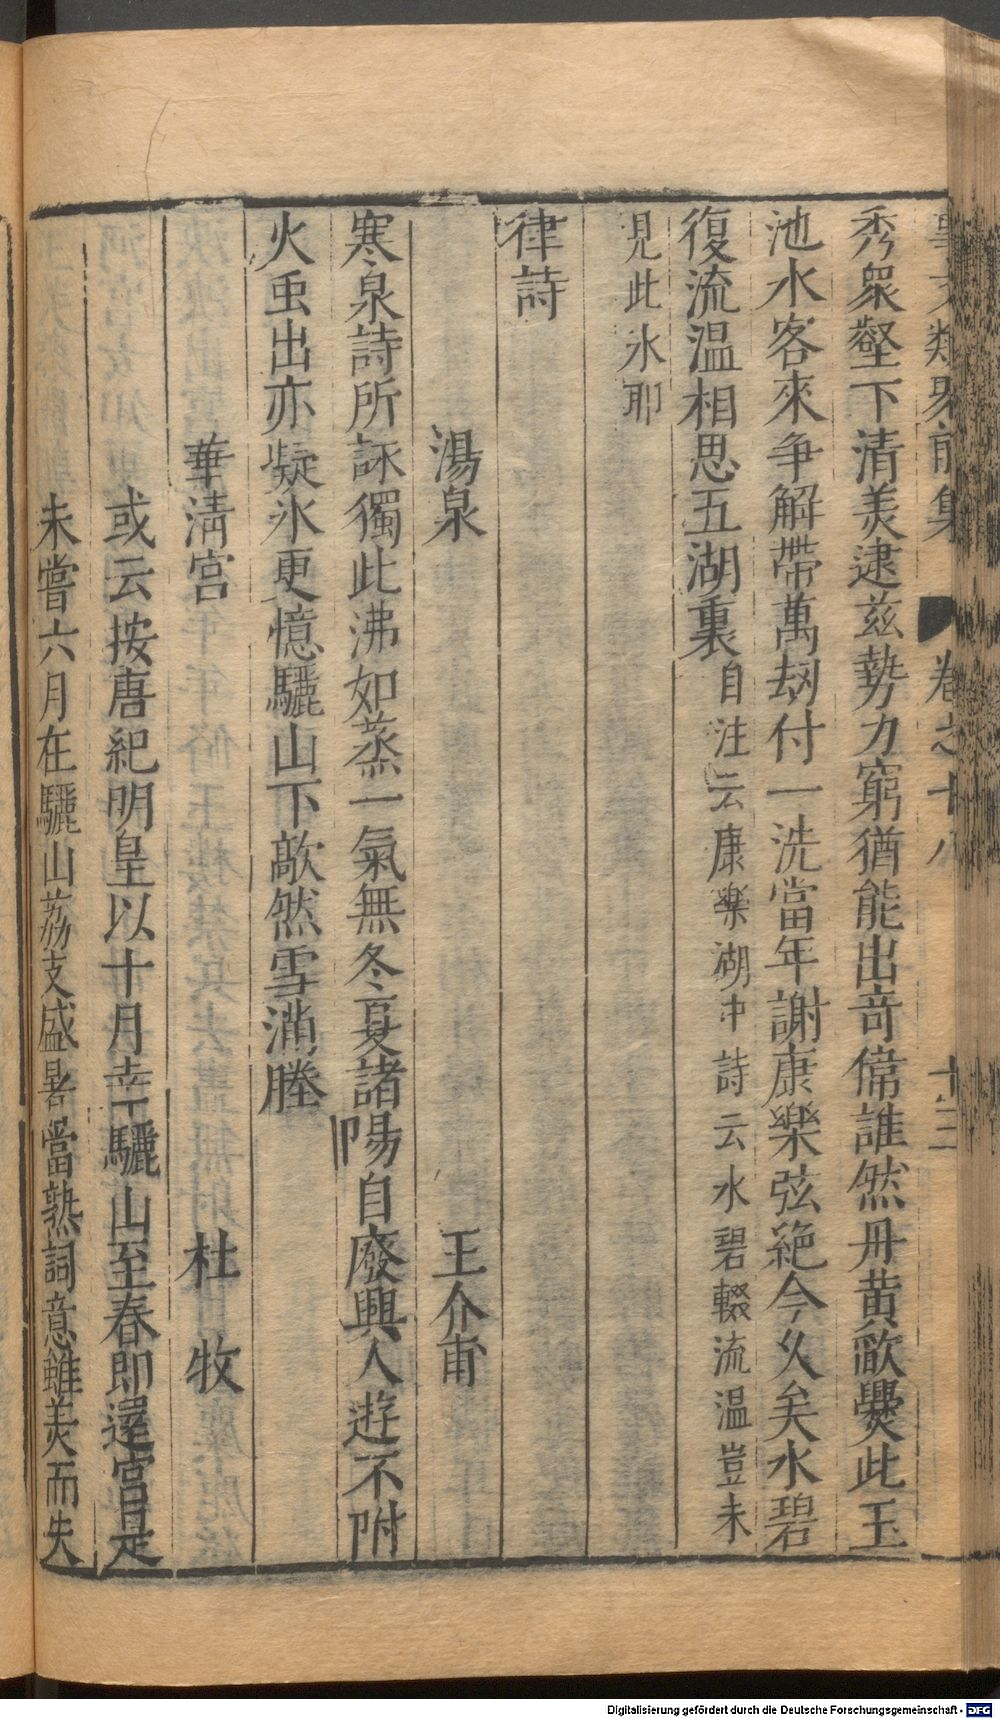 事文類聚前集 卷之十八 十三
秀衆壑下清羙逮兹勢力窮猶能出竒偉誰然丹黄㰸爨此玉
池水客來争解帶萬刼付一洗當年謝康樂弦絶今久矣水碧
復流温相思五湖裏自注云康樂湖中詩云水碧輟流温豈未
見此氷耶
律詩
湯泉 王介甫
寒泉詩所詠獨此沸如蒸一氣無冬夏諸陽自廢興人遊不附
火虫出亦疑氷更憶驪山下歊然雪滿塍
華清宮 杜牧
或云按唐紀明皇以十月幸驪山至春即還宮是
未嘗六月在驪山荔支盛暑當熟詞意雖羙而失
Digitalisierung gefördert durch die Deutsche Forschungsgemeinschaft - DFG